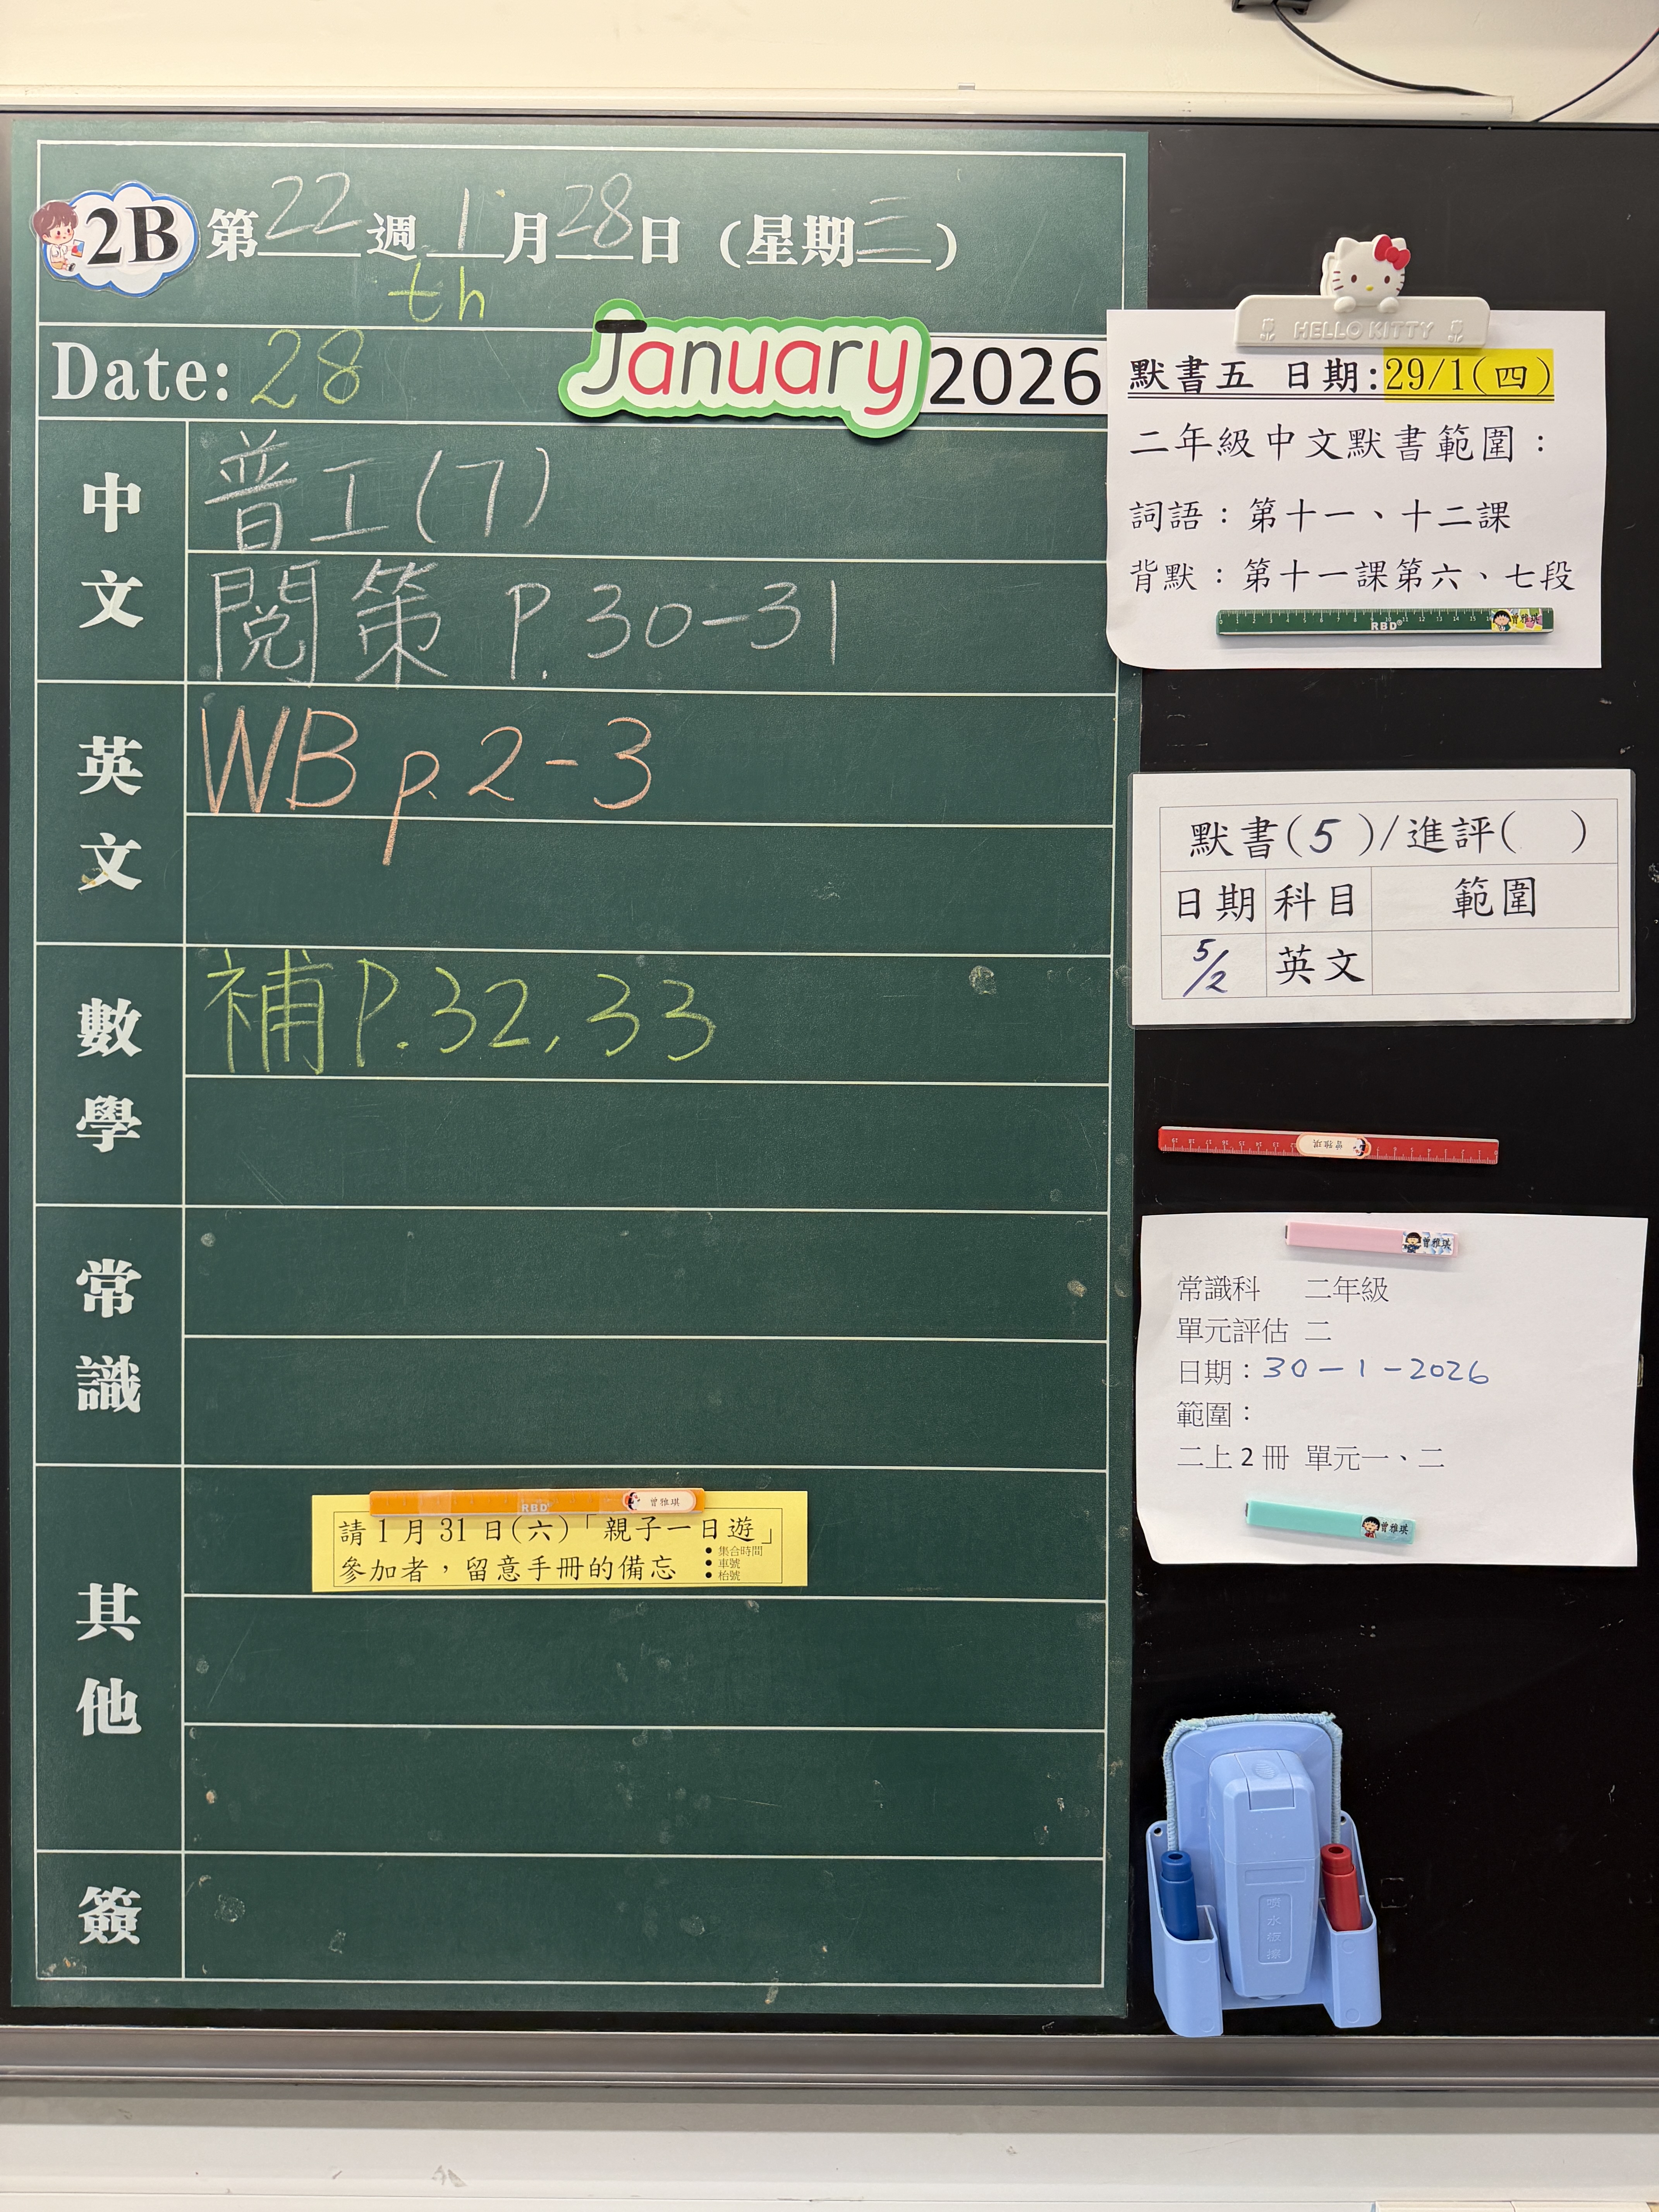 2B 第22週1月28日(星期三)
th
Date: 28 January 2026
中文
普工(7)
閱策 P.30-31
英文
WB p.2-3
數學
補P.32,33
常識
其他
請1月31日(六)「親子一日遊」
參加者,留意手冊的備忘
• 集合時間
• 車號
• 枱號
RBD
曾雅琪
簽
HELLO KITTY
默書五 日期:29/1(四)
二年級中文默書範圍:
詞語:第十一、十二課
背默:第十一課第六、七段
RBD
曾雅琪
默書(5)/進評( )
日期 科目 範圍
5/2 英文
曾雅琪
曾雅琪
常識科 二年級
單元評估 二
日期:30-1-2026
範圍:
二上2冊 單元一、二
曾雅琪
噴水板擦